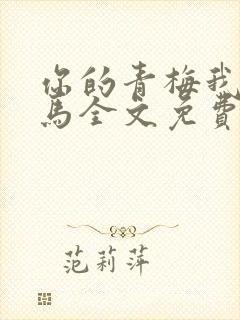 你的青梅我
马全文免費
范莉萍